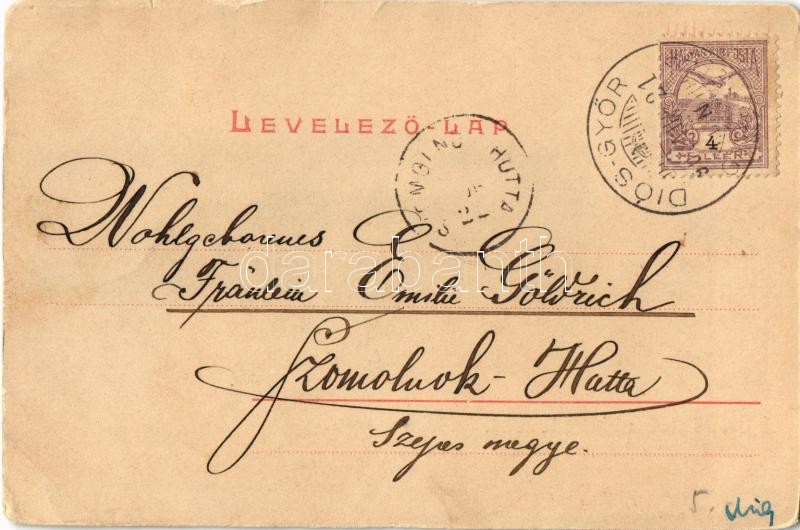 MAGYAR KIR. POSTA
DIÓS-GYŐR
4
FILLÉR
LEVELEZŐ-LAP
SZOMOLNO HUTTA
Wohlgebornes
Fräulein Emilie Göldrich
Szomolnok-Hutta
Szepes megye.
darabanth
5.